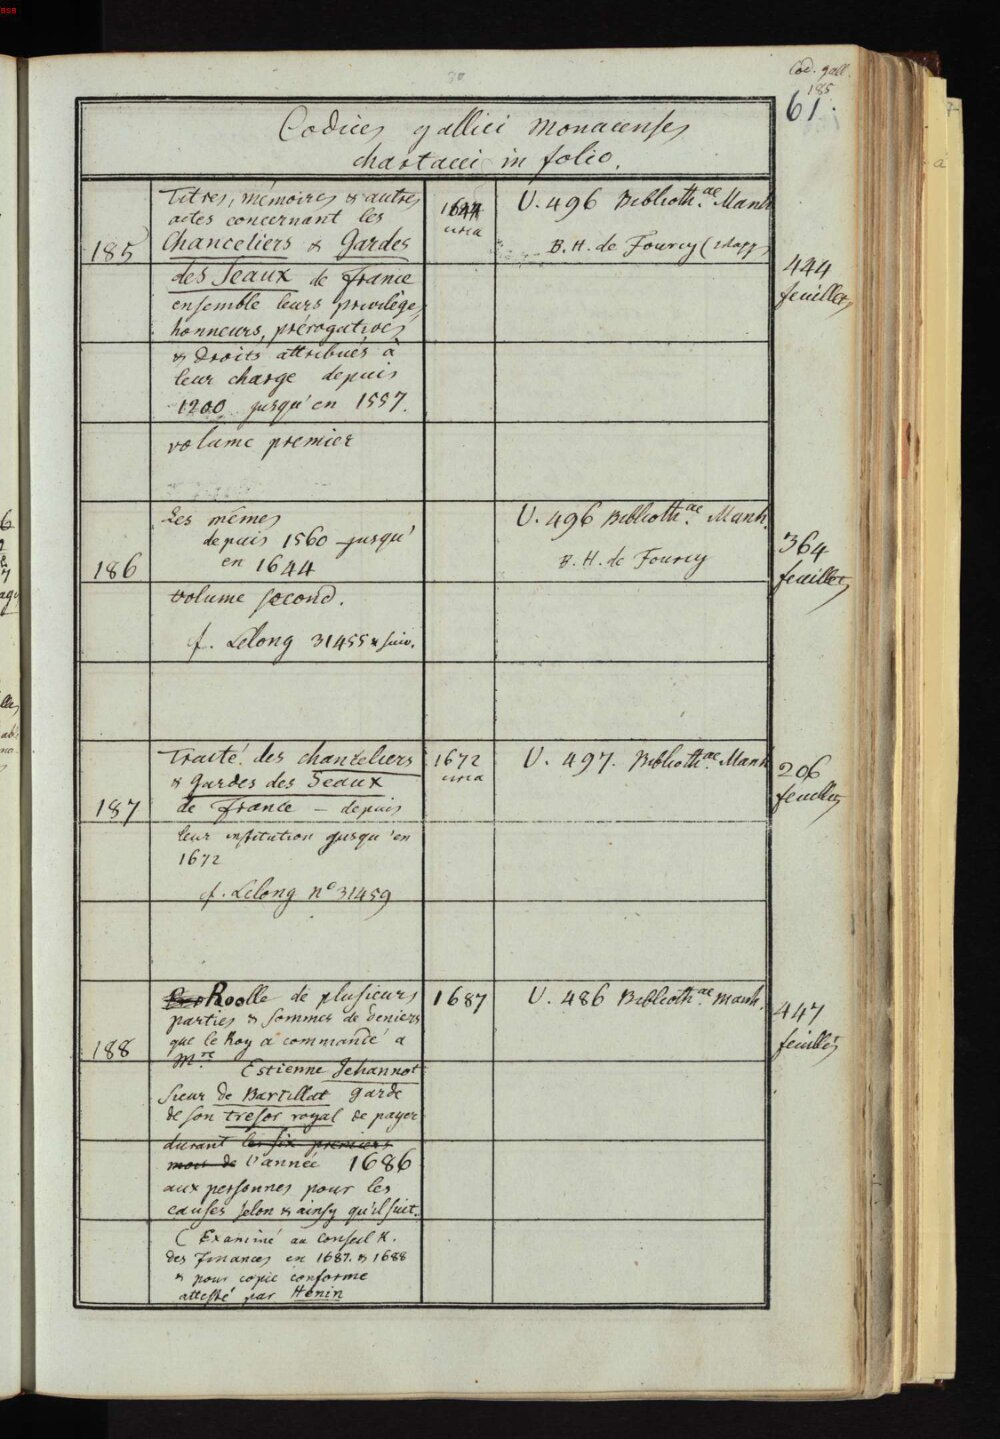 Cod. gall.
185
61.
30
Codices gallici monacenses
chartacei in folio.
Titres, mémoires & autres
actes concernant les
Chanceliers & Gardes
des Seaux de France
ensemble leurs privilèges,
honneurs, prérogatives
& droits attribués à
leur charge depuis
1200 jusqu'en 1557.
volume premier
185
1644
circa
U. 496 Bibliothae. Manh
B. H. de Fourcy
444
feuillets
Les mêmes
depuis 1560 jusqu'
en 1644
volume second.
cf. Lelong 31455 & suiv.
186
U. 496 Bibliothae. Manh.
B. H. de Fourcy
364
feuillets
Traité des chanceliers
& gardes des Seaux
de France – depuis
leur institution jusqu'en
1672
cf. Lelong no 31459
187
1672
circa
U. 497. Bibliothae. Manh
206
feuillets
Roolle de plusieurs
parties & sommes de deniers
que le Roy a commandé a
Mre. Estienne Jehannot
sieur de Bartillat garde
de son tresor royal de payer
durant les six premiers
mois de l'année 1686
aux personnes pour les
causes selon & ainsy qu'il suit.
(Examiné au Conseil R.
des finances en 1687. & 1688
& pour copie conforme
attesté par Hénin
188
1687
U. 486 Bibliothae manh.
447
feuillets